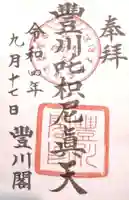 奉拝
豊川吒枳尼眞天
令和四年
九月十七日
豊川閣